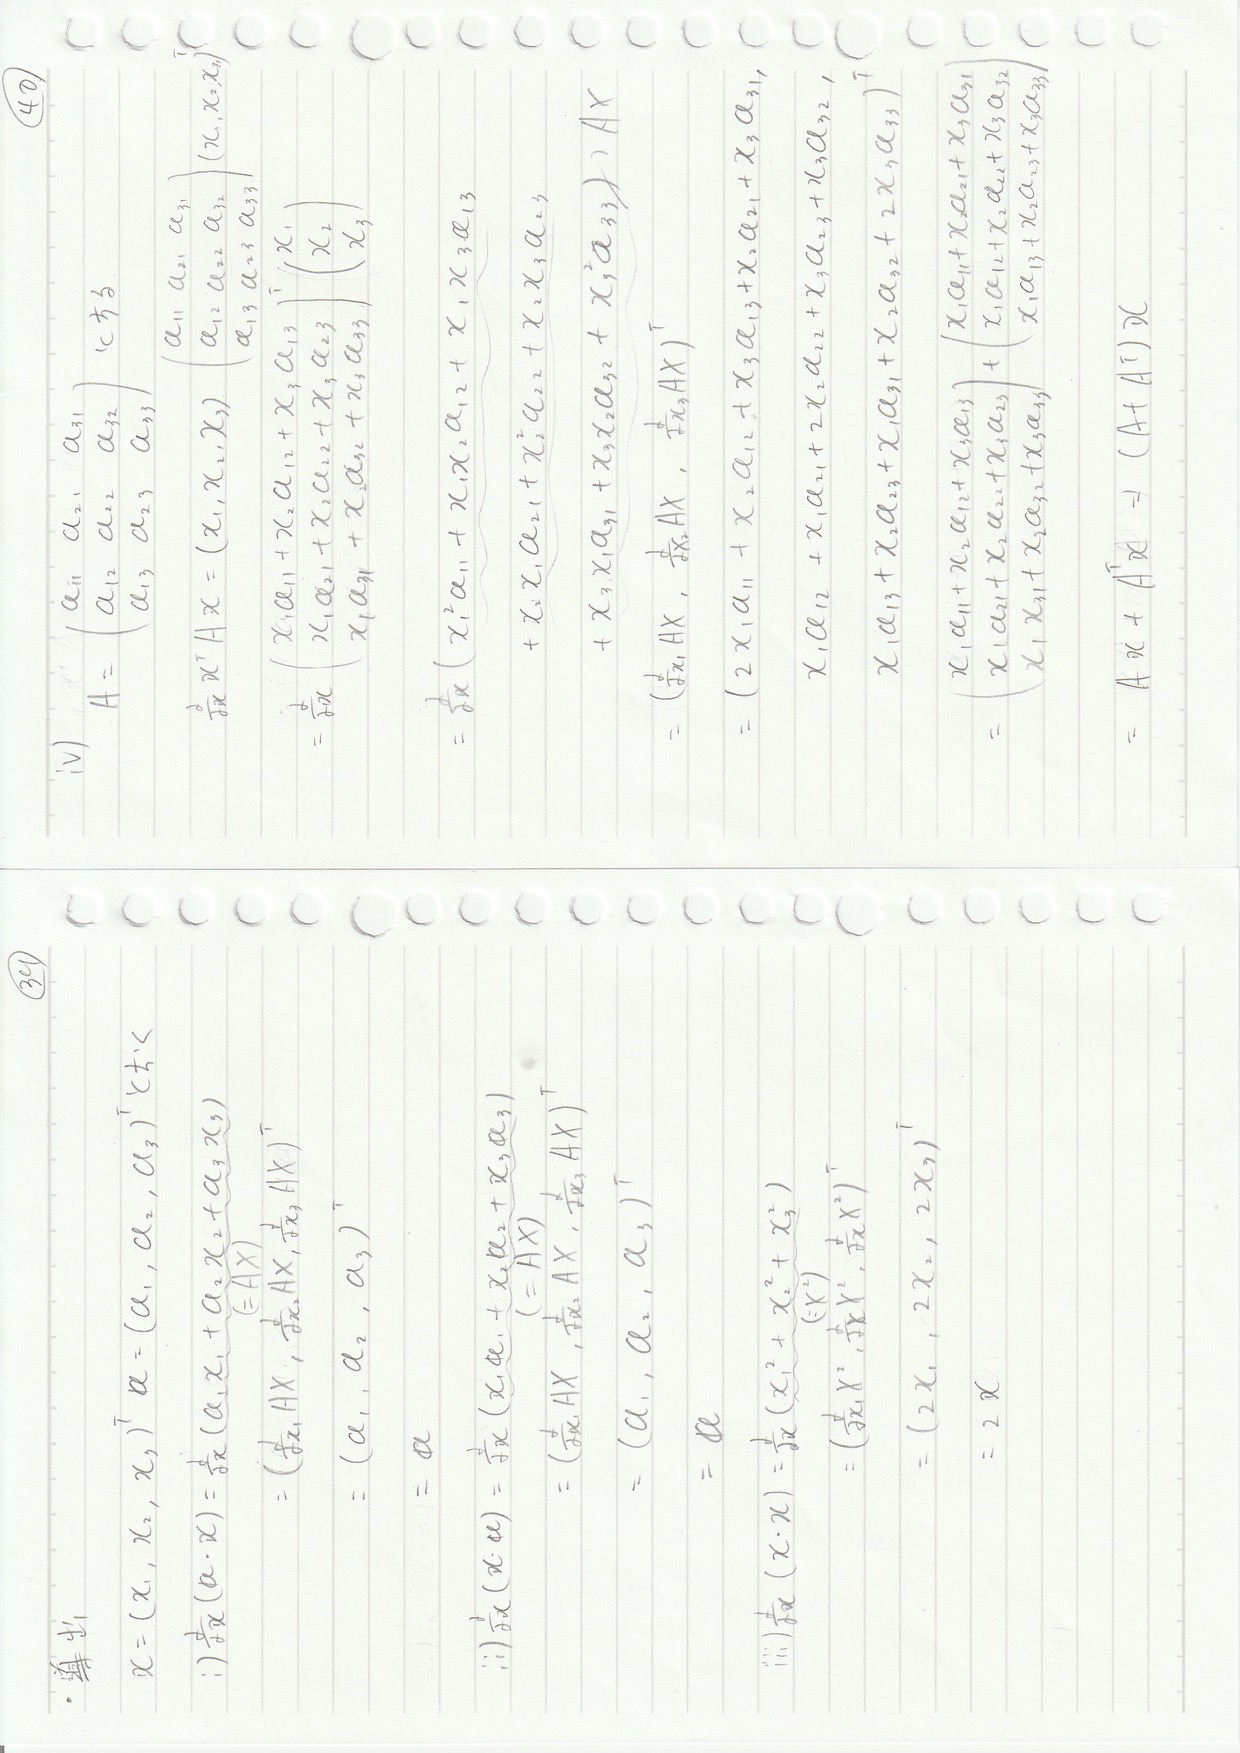 39
・導出
x = (x₁, x₂, x₃)ᵀ a = (a₁, a₂, a₃)ᵀ とおく
i) ∂/∂x (a・x) = ∂/∂x (a₁x₁ + a₂x₂ + a₃x₃)
(= AX)
= (∂/∂x₁ AX, ∂/∂x₂ AX, ∂/∂x₃ AX)ᵀ
= (a₁, a₂, a₃)ᵀ
= a
ii) ∂/∂x (x・a) = ∂/∂x (x₁a₁ + x₂a₂ + x₃a₃)
(= AX)
= (∂/∂x₁ AX, ∂/∂x₂ AX, ∂/∂x₃ AX)ᵀ
= (a₁, a₂, a₃)ᵀ
= a
iii) ∂/∂x (x・x) = ∂/∂x (x₁² + x₂² + x₃²)
(= X²)
= (∂/∂x₁ X², ∂/∂x X², ∂/∂x X²)ᵀ
= (2x₁, 2x₂, 2x₃)ᵀ
= 2x
40
iv)
a₁₁ a₂₁ a₃₁
A = ( a₁₂ a₂₂ a₃₂ ) とする
a₁₃ a₂₃ a₃₃
a₁₁ a₂₁ a₃₁
∂/∂x xᵀAx = (x₁, x₂, x₃) ( a₁₂ a₂₂ a₃₂ ) (x₁, x₂, x₃)ᵀ
a₁₃ a₂₃ a₃₃
x₁a₁₁ + x₂a₁₂ + x₃a₁₃ ᵀ x₁
= ∂/∂x ( x₁a₂₁ + x₂a₂₂ + x₃a₂₃ ) ( x₂ )
x₁a₃₁ + x₂a₃₂ + x₃a₃₃ x₃
= ∂/∂x ( x₁²a₁₁ + x₁x₂a₁₂ + x₁x₃a₁₃
+ x₂x₁a₂₁ + x₂²a₂₂ + x₂x₃a₂₃
+ x₃x₁a₃₁ + x₃x₂a₃₂ + x₃²a₃₃ ) AX
= (∂/∂x₁ AX, ∂/∂x₂ AX, ∂/∂x₃ AX)ᵀ
= (2x₁a₁₁ + x₂a₁₂ + x₃a₁₃ + x₂a₂₁ + x₃a₃₁,
x₁a₁₂ + x₁a₂₁ + 2x₂a₂₂ + x₃a₂₃ + x₃a₃₂,
x₁a₁₃ + x₂a₂₃ + x₁a₃₁ + x₂a₃₂ + 2x₃a₃₃)ᵀ
x₁a₁₁ + x₂a₁₂ + x₃a₁₃ x₁a₁₁ + x₂a₂₁ + x₃a₃₁
= ( x₁a₂₁ + x₂a₂₂ + x₃a₂₃ ) + ( x₁a₁₂ + x₂a₂₂ + x₃a₃₂ )
x₁x₃₁ + x₂a₃₂ + x₃a₃₃ x₁a₁₃ + x₂a₂₃ + x₃a₃₃
= Ax + Aᵀx = (A + Aᵀ)x